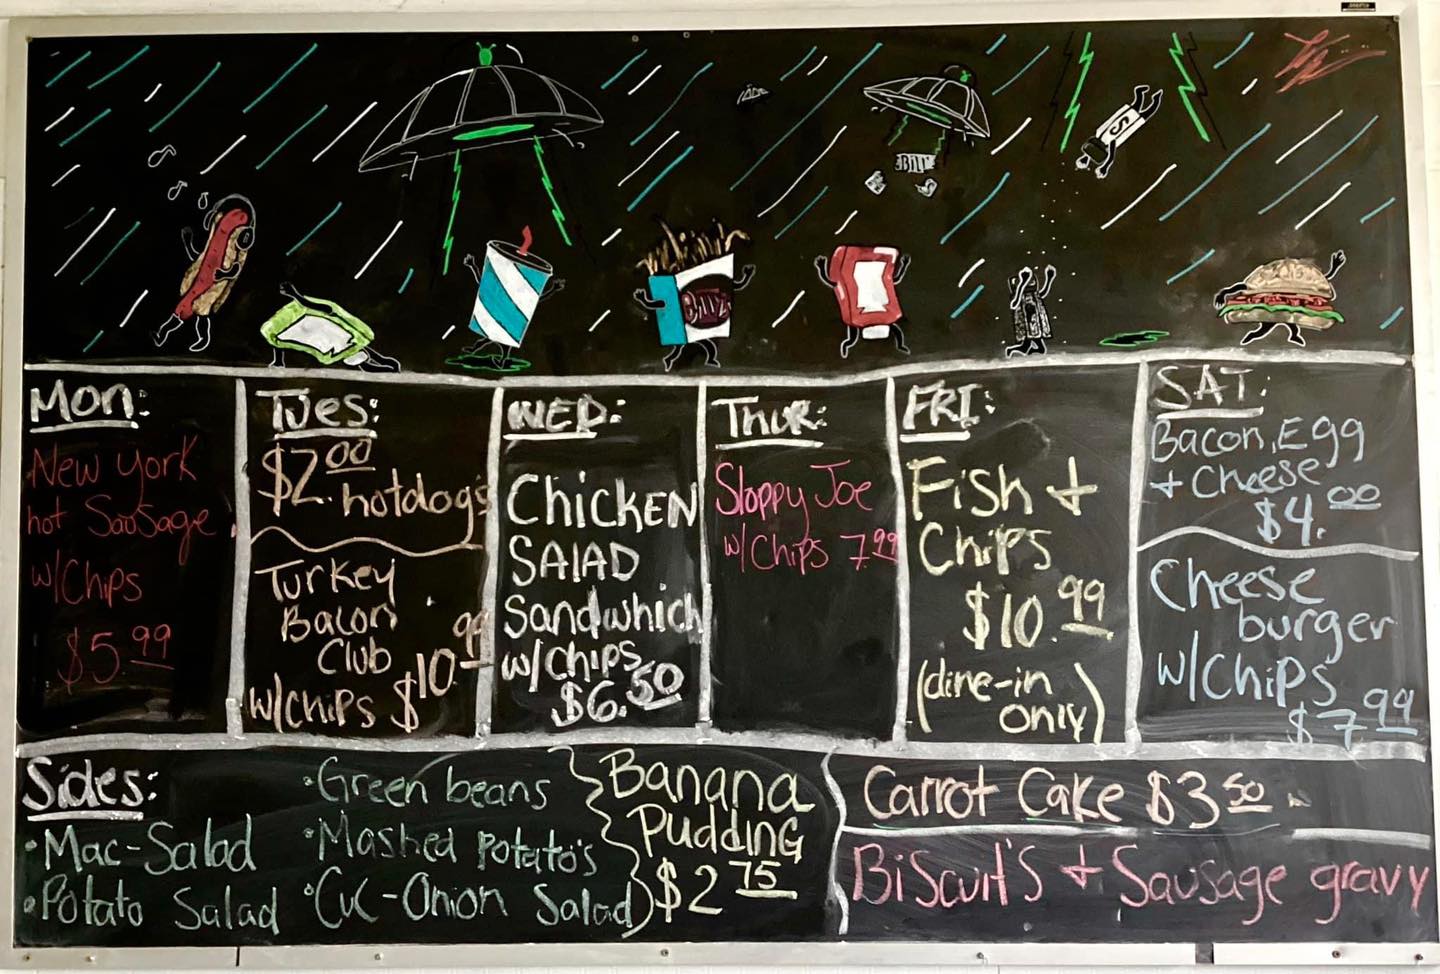 BILL'
S
BILLZ
Mon:
New York
hot Sausage
w/Chips
$5.99
Tues:
$2.00
hotdogs
Turkey
Bacon
Club
w/Chips $10.99
WED:
CHICKEN
SALAD
Sandwhich
w/Chips
$6.50
Thur:
Sloppy Joe
w/Chips 7.99
FRI:
Fish +
Chips
$10.99
(dine-in
only)
SAT:
Bacon, Egg
+ Cheese
$4.00
Cheese
burger
w/Chips
$7.99
Sides:
•Mac-Salad
•Potato Salad
•Green beans
•Mashed Potato's
•Cuc-Onion Salad
Banana
Pudding
$2.75
Carrot Cake $3.50
Biscuit's + Sausage gravy